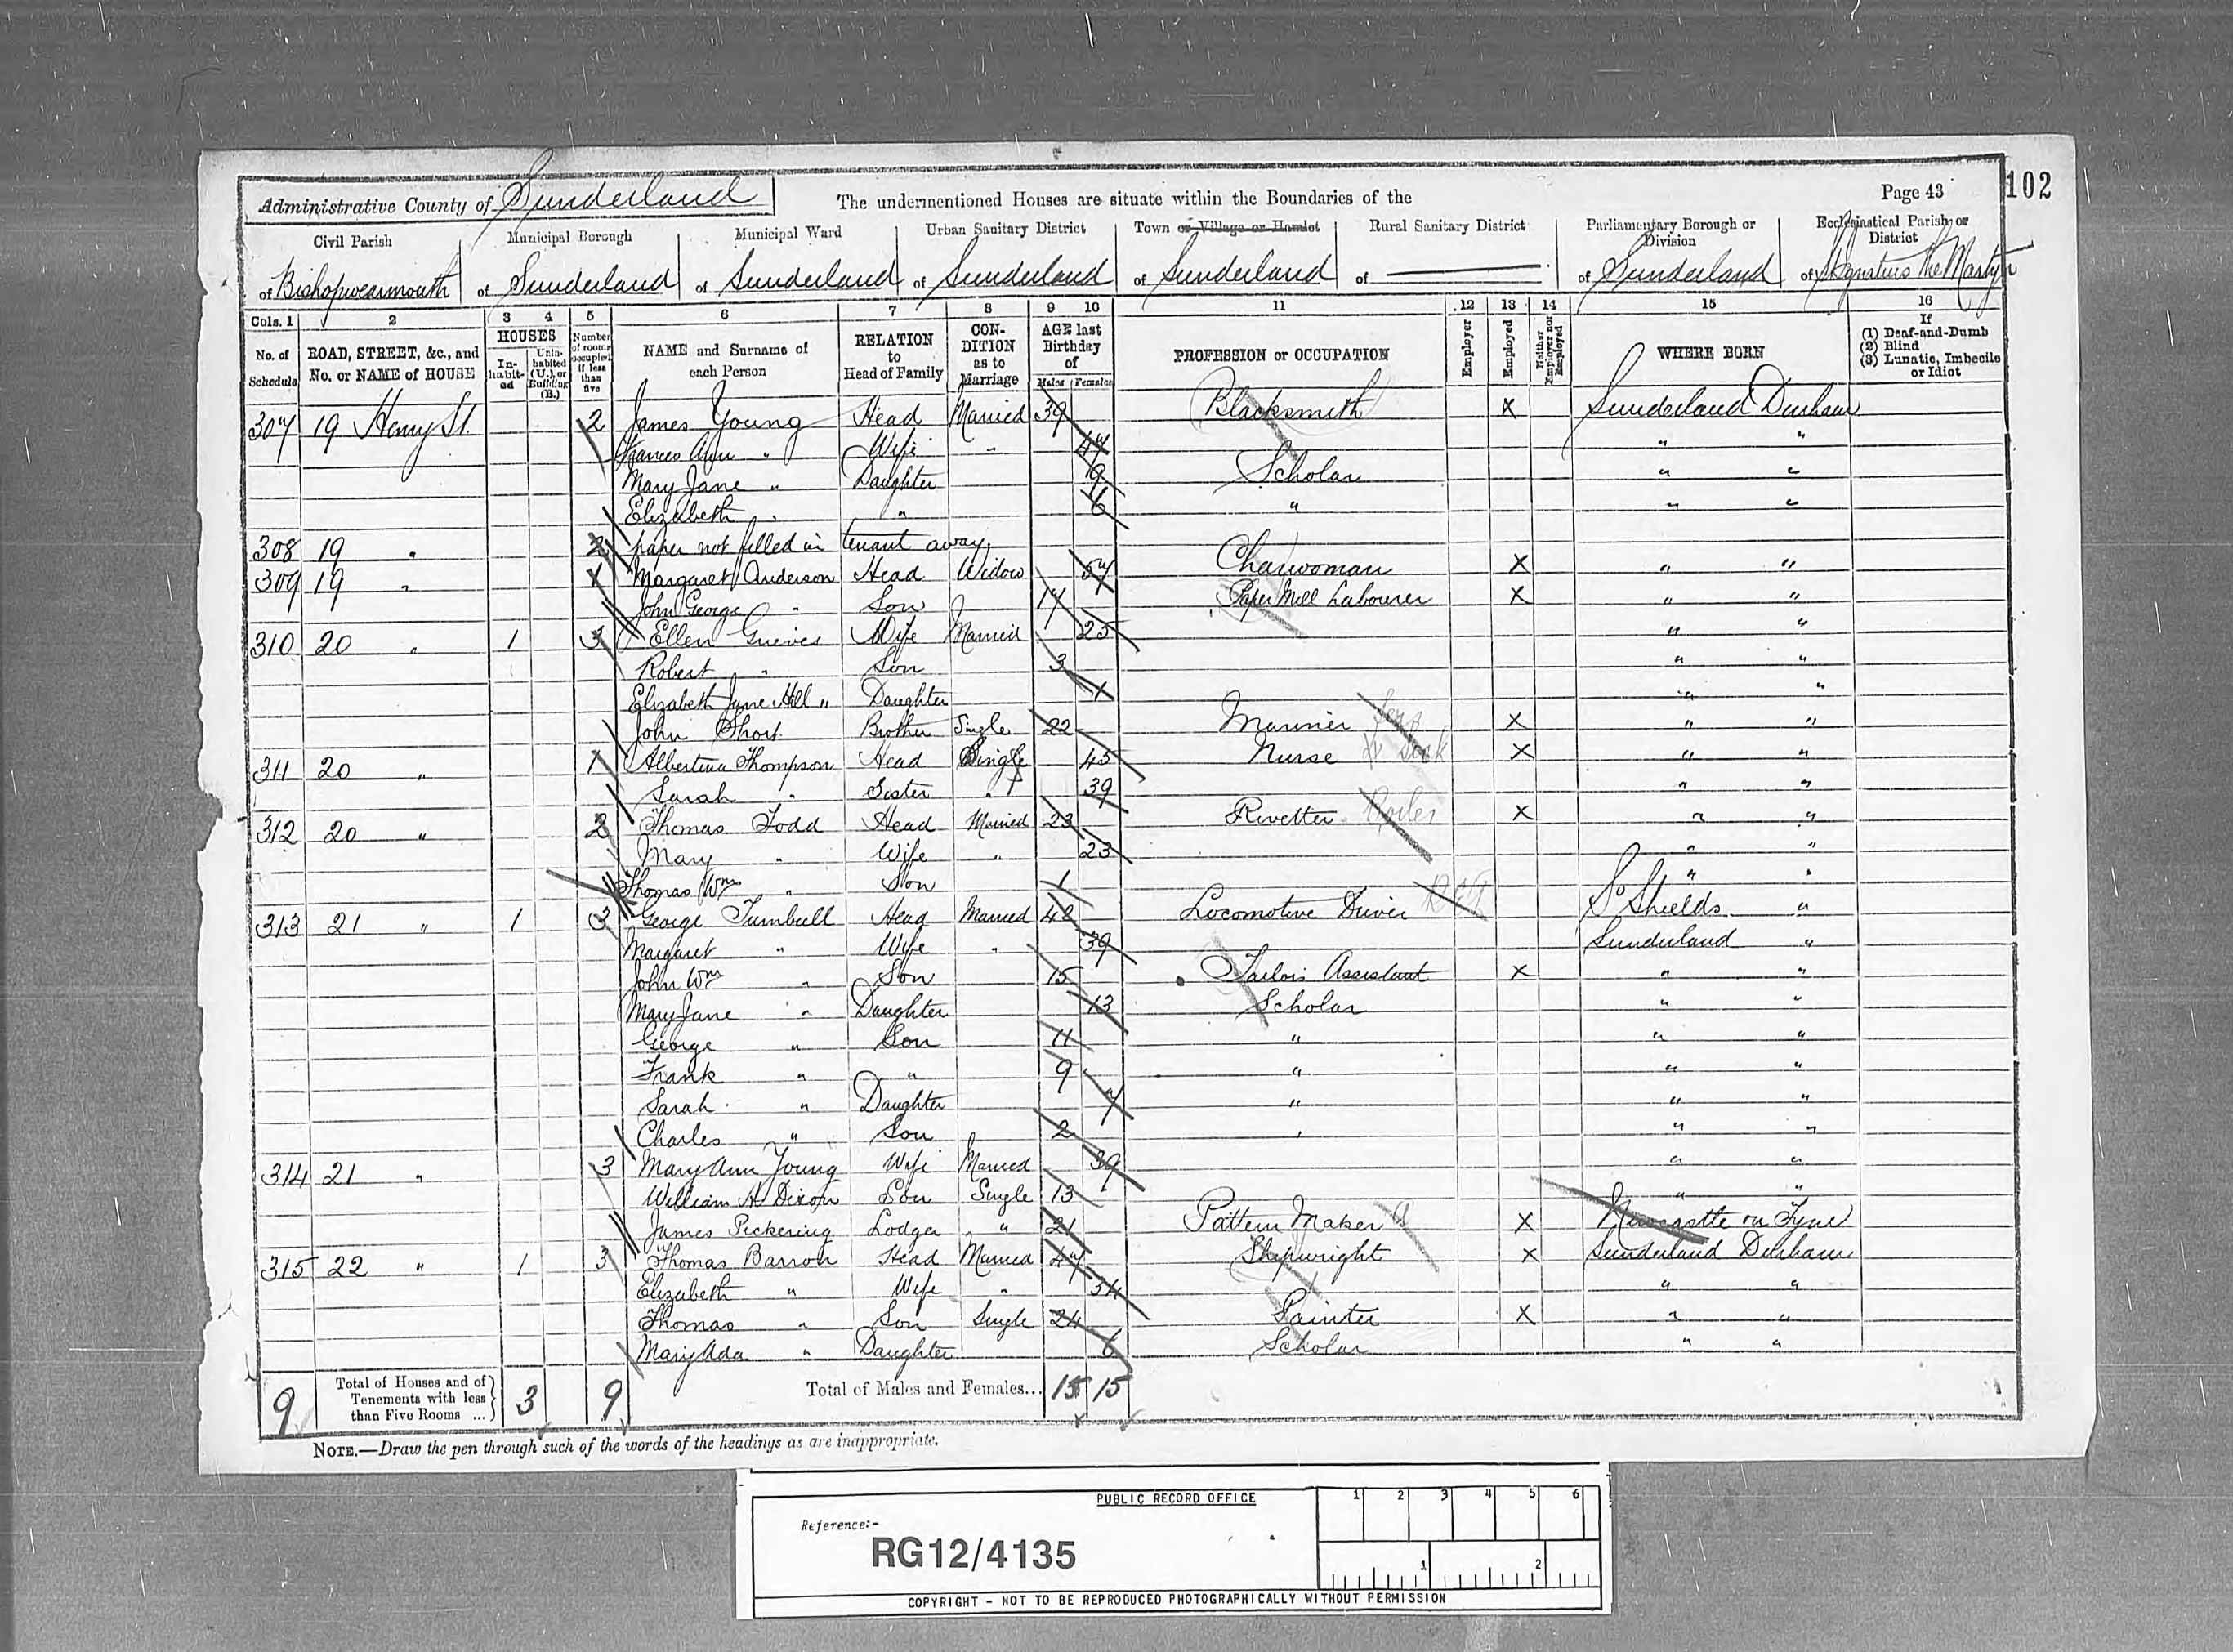 102
Administrative County of Sunderland The undermentioned Houses are situate within the Boundaries of the Page 43
Civil Parish Municipal Borough Municipal Ward Urban Sanitary District Town or Village or Hamlet Rural Sanitary District Parliamentary Borough or Division Ecclesiastical Parish or District
of Bishopwearmouth of Sunderland of Sunderland of Sunderland of Sunderland of of Sunderland of St Ignatius the Martyr
Cols. 1 2 3 4 5 6 7 8 9 10 11 12 13 14 15 16
No. of Schedule ROAD, STREET, &c., and No. or NAME of HOUSE HOUSES In-habit-ed Unin-habited (U.), or Building (B.) Number of rooms occupied if less than five NAME and Surname of each Person RELATION to Head of Family CON-DITION as to Marriage AGE last Birthday of Males Females PROFESSION or OCCUPATION Employer Employed Neither Employer nor Employed WHERE BORN If (1) Deaf-and-Dumb (2) Blind (3) Lunatic, Imbecile or Idiot
307 19 Henry St. 2 James Young Head Married 39 Blacksmith X Sunderland Durham
Frances Ann " Wife " 47 " "
Mary Jane " Daughter 9 Scholar " "
Elizabeth " " 6 " " "
308 19 " 2 paper not filled in tenant away.
309 19 " 1 Margaret Anderson Head Widow 57 Charwoman X " "
John George " Son 17 Paper Mill Labourer X " "
310 20 " 1 3 Ellen Grieves Wife Married 25 " "
Robert " Son 3 " "
Elizabeth Jane Hill " Daughter 1 " "
John Short Brother Single 22 Mariner X " "
311 20 " 1 Albertina Thompson Head Single 45 Nurse X " "
Sarah " Sister " 39 " "
312 20 " 2 Thomas Todd Head Married 23 Rivetter X " "
Mary " Wife " 23 " "
Thomas Wm " Son 1 " "
313 21 " 1 3 George Turnbull Head Married 42 Locomotive Driver So Shields "
Margaret " Wife " 39 Sunderland "
John Wm " Son 15 Tailors Assistant X " "
Mary Jane " Daughter 13 Scholar " "
George " Son 11 " " "
Frank " " 9 " " "
Sarah " Daughter 7 " " "
Charles " Son 2 " " "
314 21 " 3 Mary Ann Young Wife Married 39 " "
William H Dixon Son Single 13 " "
James Pickering Lodger " 21 Pattern Maker X Newcastle on Tyne
315 22 " 1 3 Thomas Barron Head Married 47 Shipwright X Sunderland Durham
Elizabeth " Wife " 54 " "
Thomas " Son Single 24 Painter X " "
Mary Ada " Daughter 6 Scholar " "
9 Total of Houses and of Tenements with less than Five Rooms ... 3 9 Total of Males and Females... 15 15
NOTE.—Draw the pen through such of the words of the headings as are inappropriate.
PUBLIC RECORD OFFICE 1 2 3 4 5 6
Reference:-
RG12/4135
1 2
COPYRIGHT - NOT TO BE REPRODUCED PHOTOGRAPHICALLY WITHOUT PERMISSION